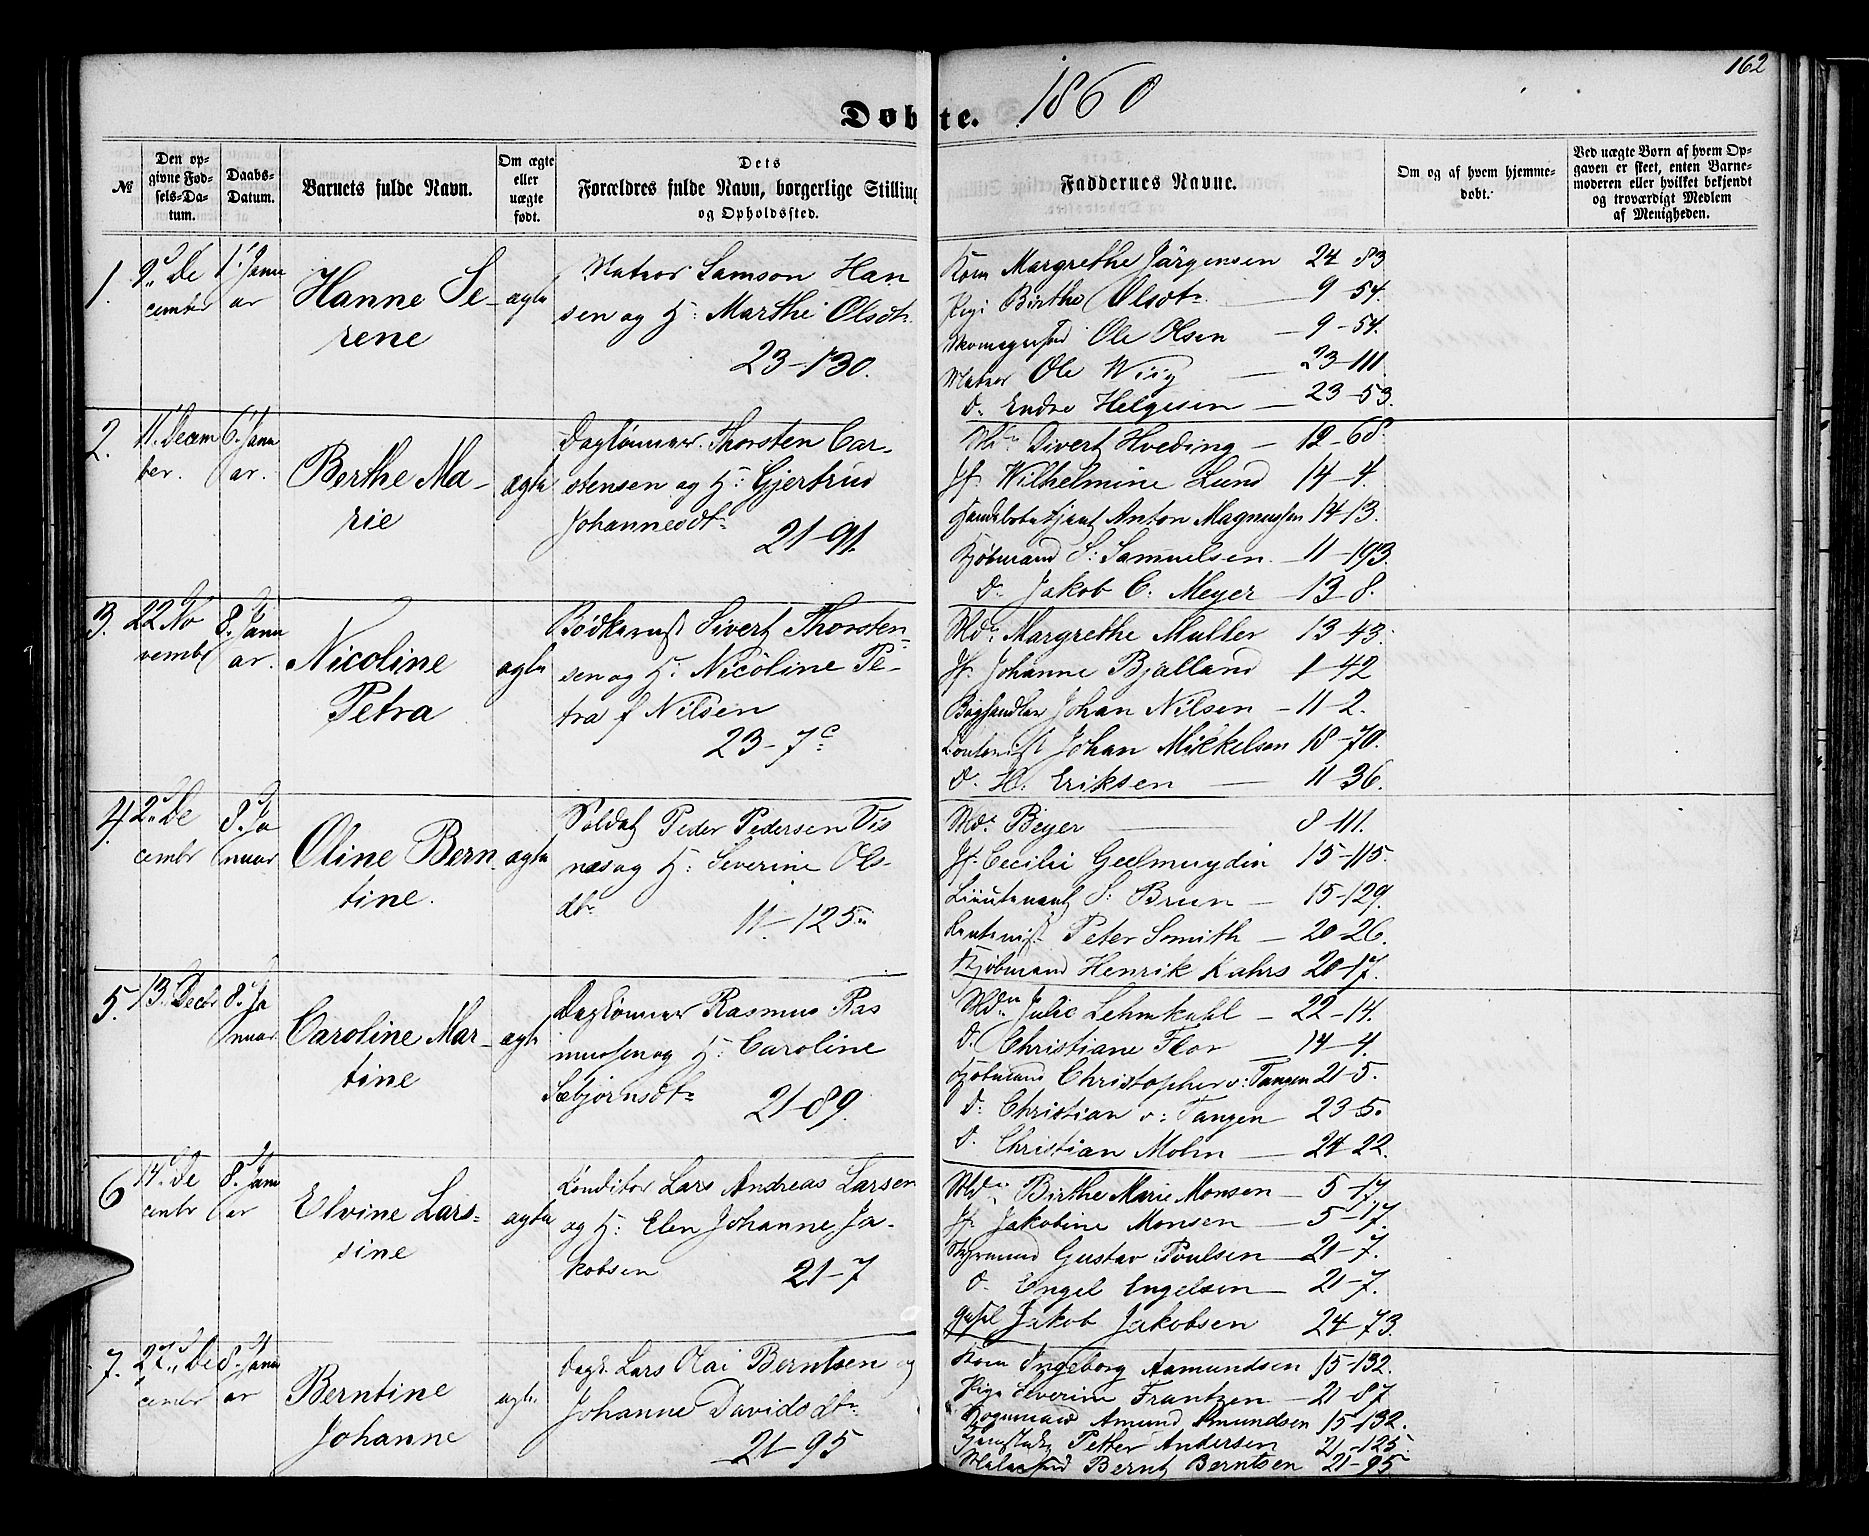 162
Døbte. 1860
№
Den opgivne Fødsels-Datum.
Daabs-Datum.
Barnets fulde Navn.
Om ægte eller uægte født.
Dets Forældres fulde Navn, borgerlige Stilling og Opholdssted.
Faddernes Navne.
Om og af hvem hjemmedøbt.
Ved uægte Børn af hvem Opgaven er skeet, enten Barnemoderen eller hvilket bekjendt og troværdigt Medlem af Menigheden.
1. 9 De
cember
1 Janu
ar
Hanne Se-
rene
ægte
Matros Samson Han
sen og H: Marthe Olsdtr
23-130.
Kone Margrethe Jørgensen 24 83
Pige Birthe Olsdtr 9-54.
Skomagersvd Ole Olsen 9-54.
Matros Ole Wiig 23-111
Do Endre Helgesen 23-53.
2. 11. Decem
ber.
6. Janu
ar.
Berthe Ma-
rie
ægte
Daglønner Thorsten Car-
stensen og H: Gjertrud
Johannesdtr
21-91.
Md: Sivert Hveding 12-68.
Jf. Wilhelmine Lund 14-4.
Handelsbetjent Anton Magnussen 14-13.
Kjøbmand S: Samuelsen 11-193.
Do Jakob C. Meyer 13-8.
3. 22 No
vembr
8. Janu
ar.
Nicoline
Petra
ægte
Bødkersv Sivert Thorsten-
sen og H: Nicoline Pe-
tra f Nilsen
23-7c
Md: Margrethe Muller 13-43.
Jf. Johanne Bjelland 1-42
Boghandler Johan Nilsen 11-2.
Kontorist Johan Mikkelsen 18-70.
Do H. Eriksen 11-36.
4. 2 De
cembr
8. Ja
nuar
Oline Bern
tine.
ægte
Soldat Peder Pedersen Vis
næs og H: Severine Ols-
dtr
11-125.
Md: Beyer 8-111.
Jf. Cecilie Geelmuyden 15-115.
Lieutenant S: Bruun 15-129.
Kontorist Peter Smith 20-26.
Kjøbmand Henrik Kahrs 20-17.
5. 13. Decbr
8. Ja
nuar
Caroline Mar-
tine
ægte
Daglønner Rasmus Ras
mussen og H: Caroline
Sæbjørnsdtr
21-89.
Md: Julie Lehmkuhl 22-14.
Do Christiane Flor 14-4.
Kjøbmand Christopher v: Tangen 21-5.
Do: Christian v: Tangen 23-5.
Do. Christian Mohn 24-22.
6 14. De
cembr
8. Janu
ar
Elvine Lars-
sine
ægte
Konditor Lars Andreas Larsen
og H: Elen Johanne Ja-
kobsen
21-7
Md: Birthe Marie Monsen 5-17.
Jf. Jakobine Monsen 5-17.
Styrmand Gustav Poulsen 21-7.
Do Engel Engelsen 21-7.
Jakob Jakobsen 24-73.
7. 27. De
cembr
8. Janu
ar
Berntine
Johanne
ægte
Dagl. Lars Olai Berntsen og
Johanne Davidsdtr
21-95
Kone Ingeborg Aamundsen 15-132.
Pige Severine Frantzen 21-87
Amund Amundsen 15-132.
Petter Andersen 21-125.
Bernt Berntsen 21-95